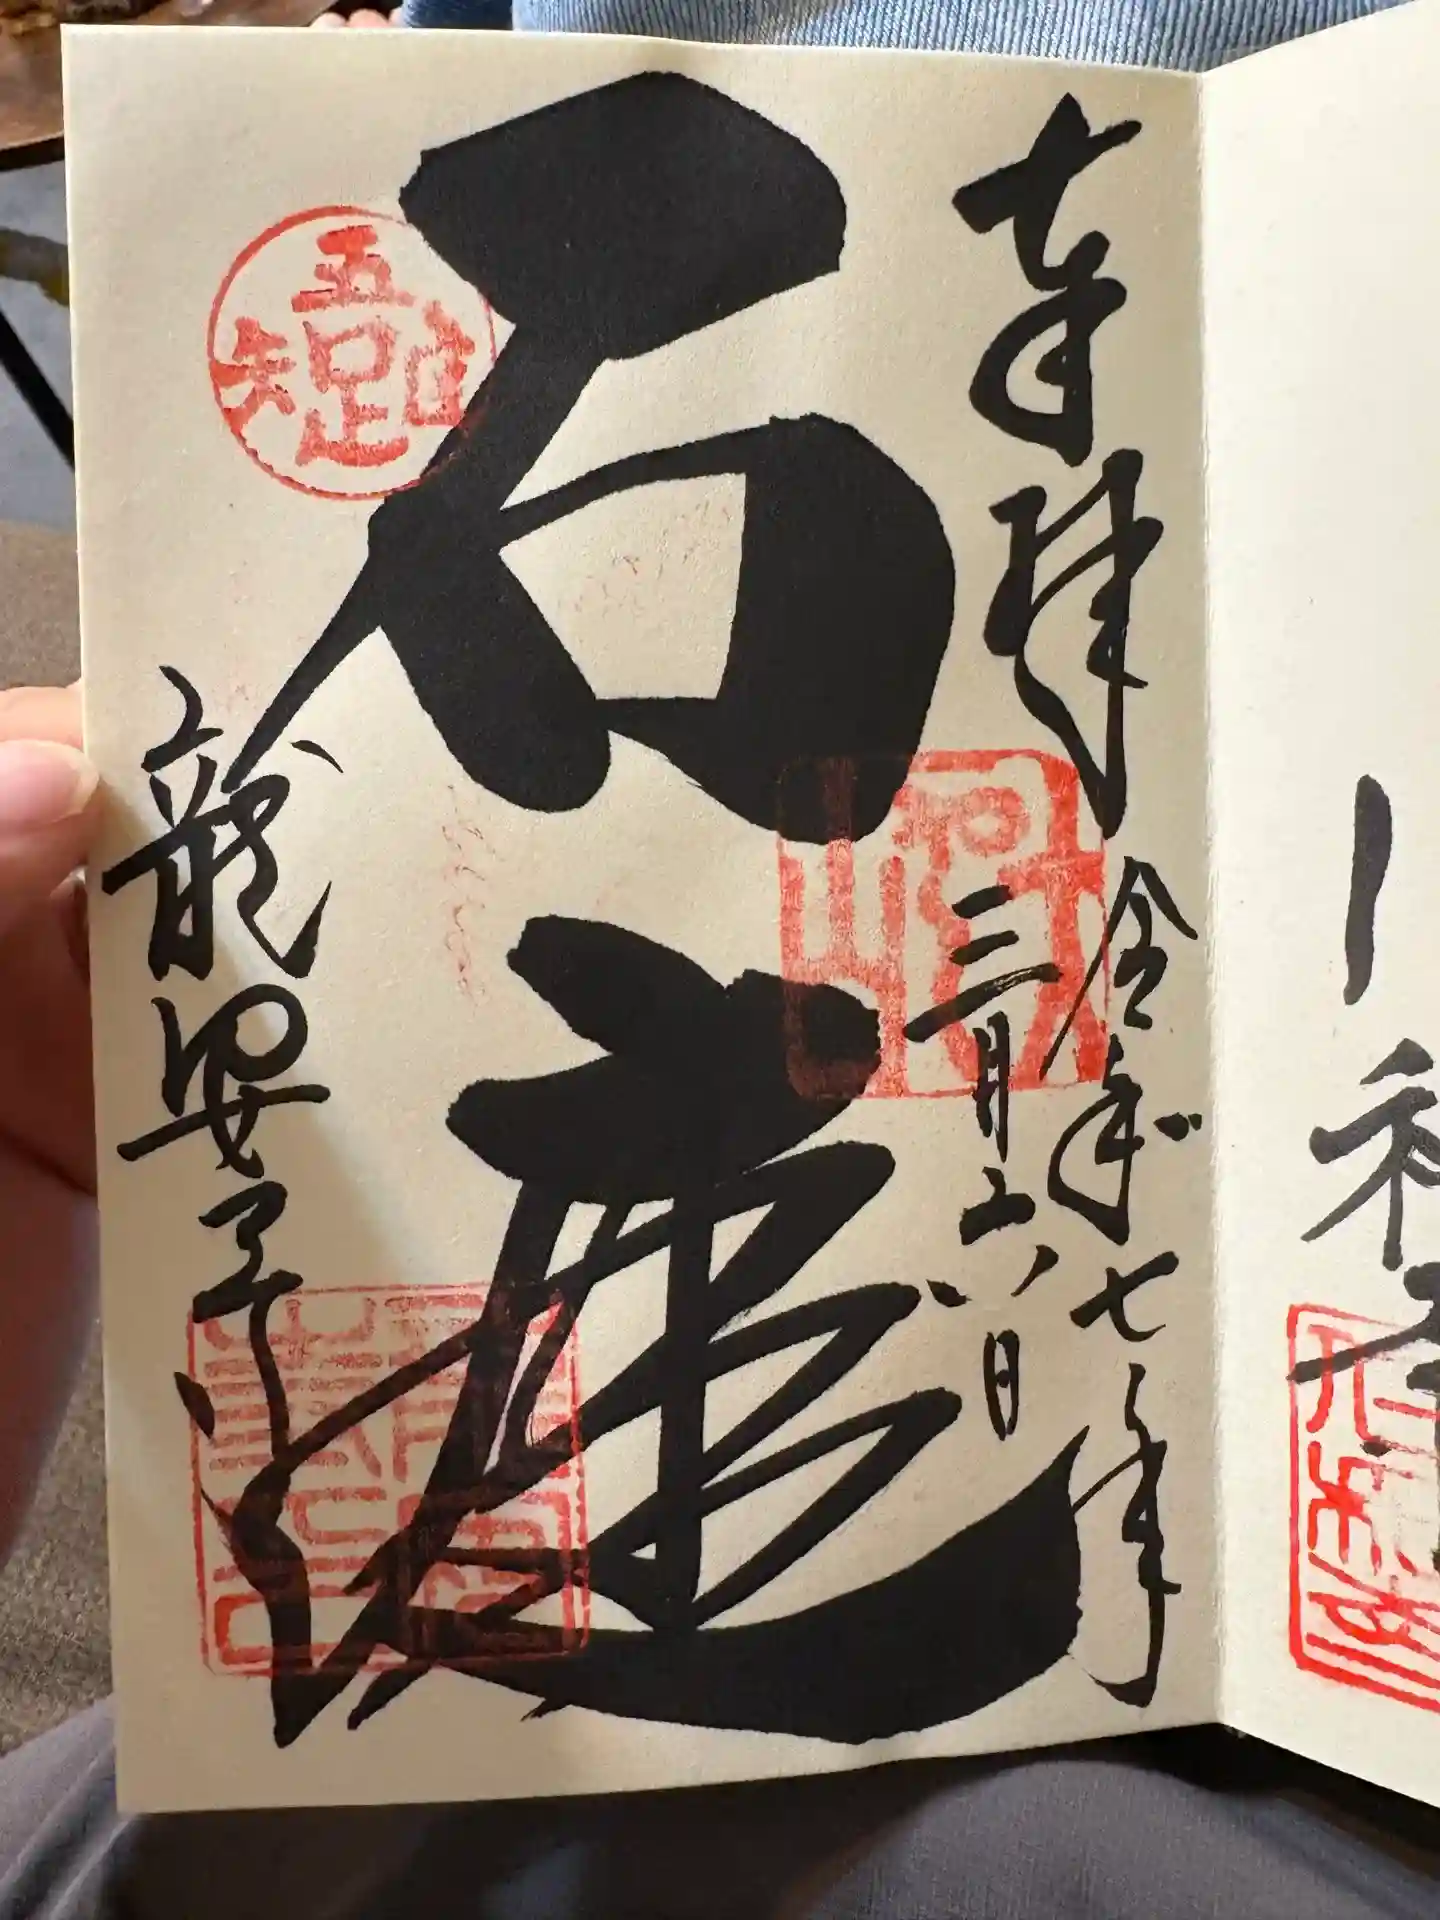 奉拝
令和七年
三月六日
石庭
龍安寺
吾唯足知